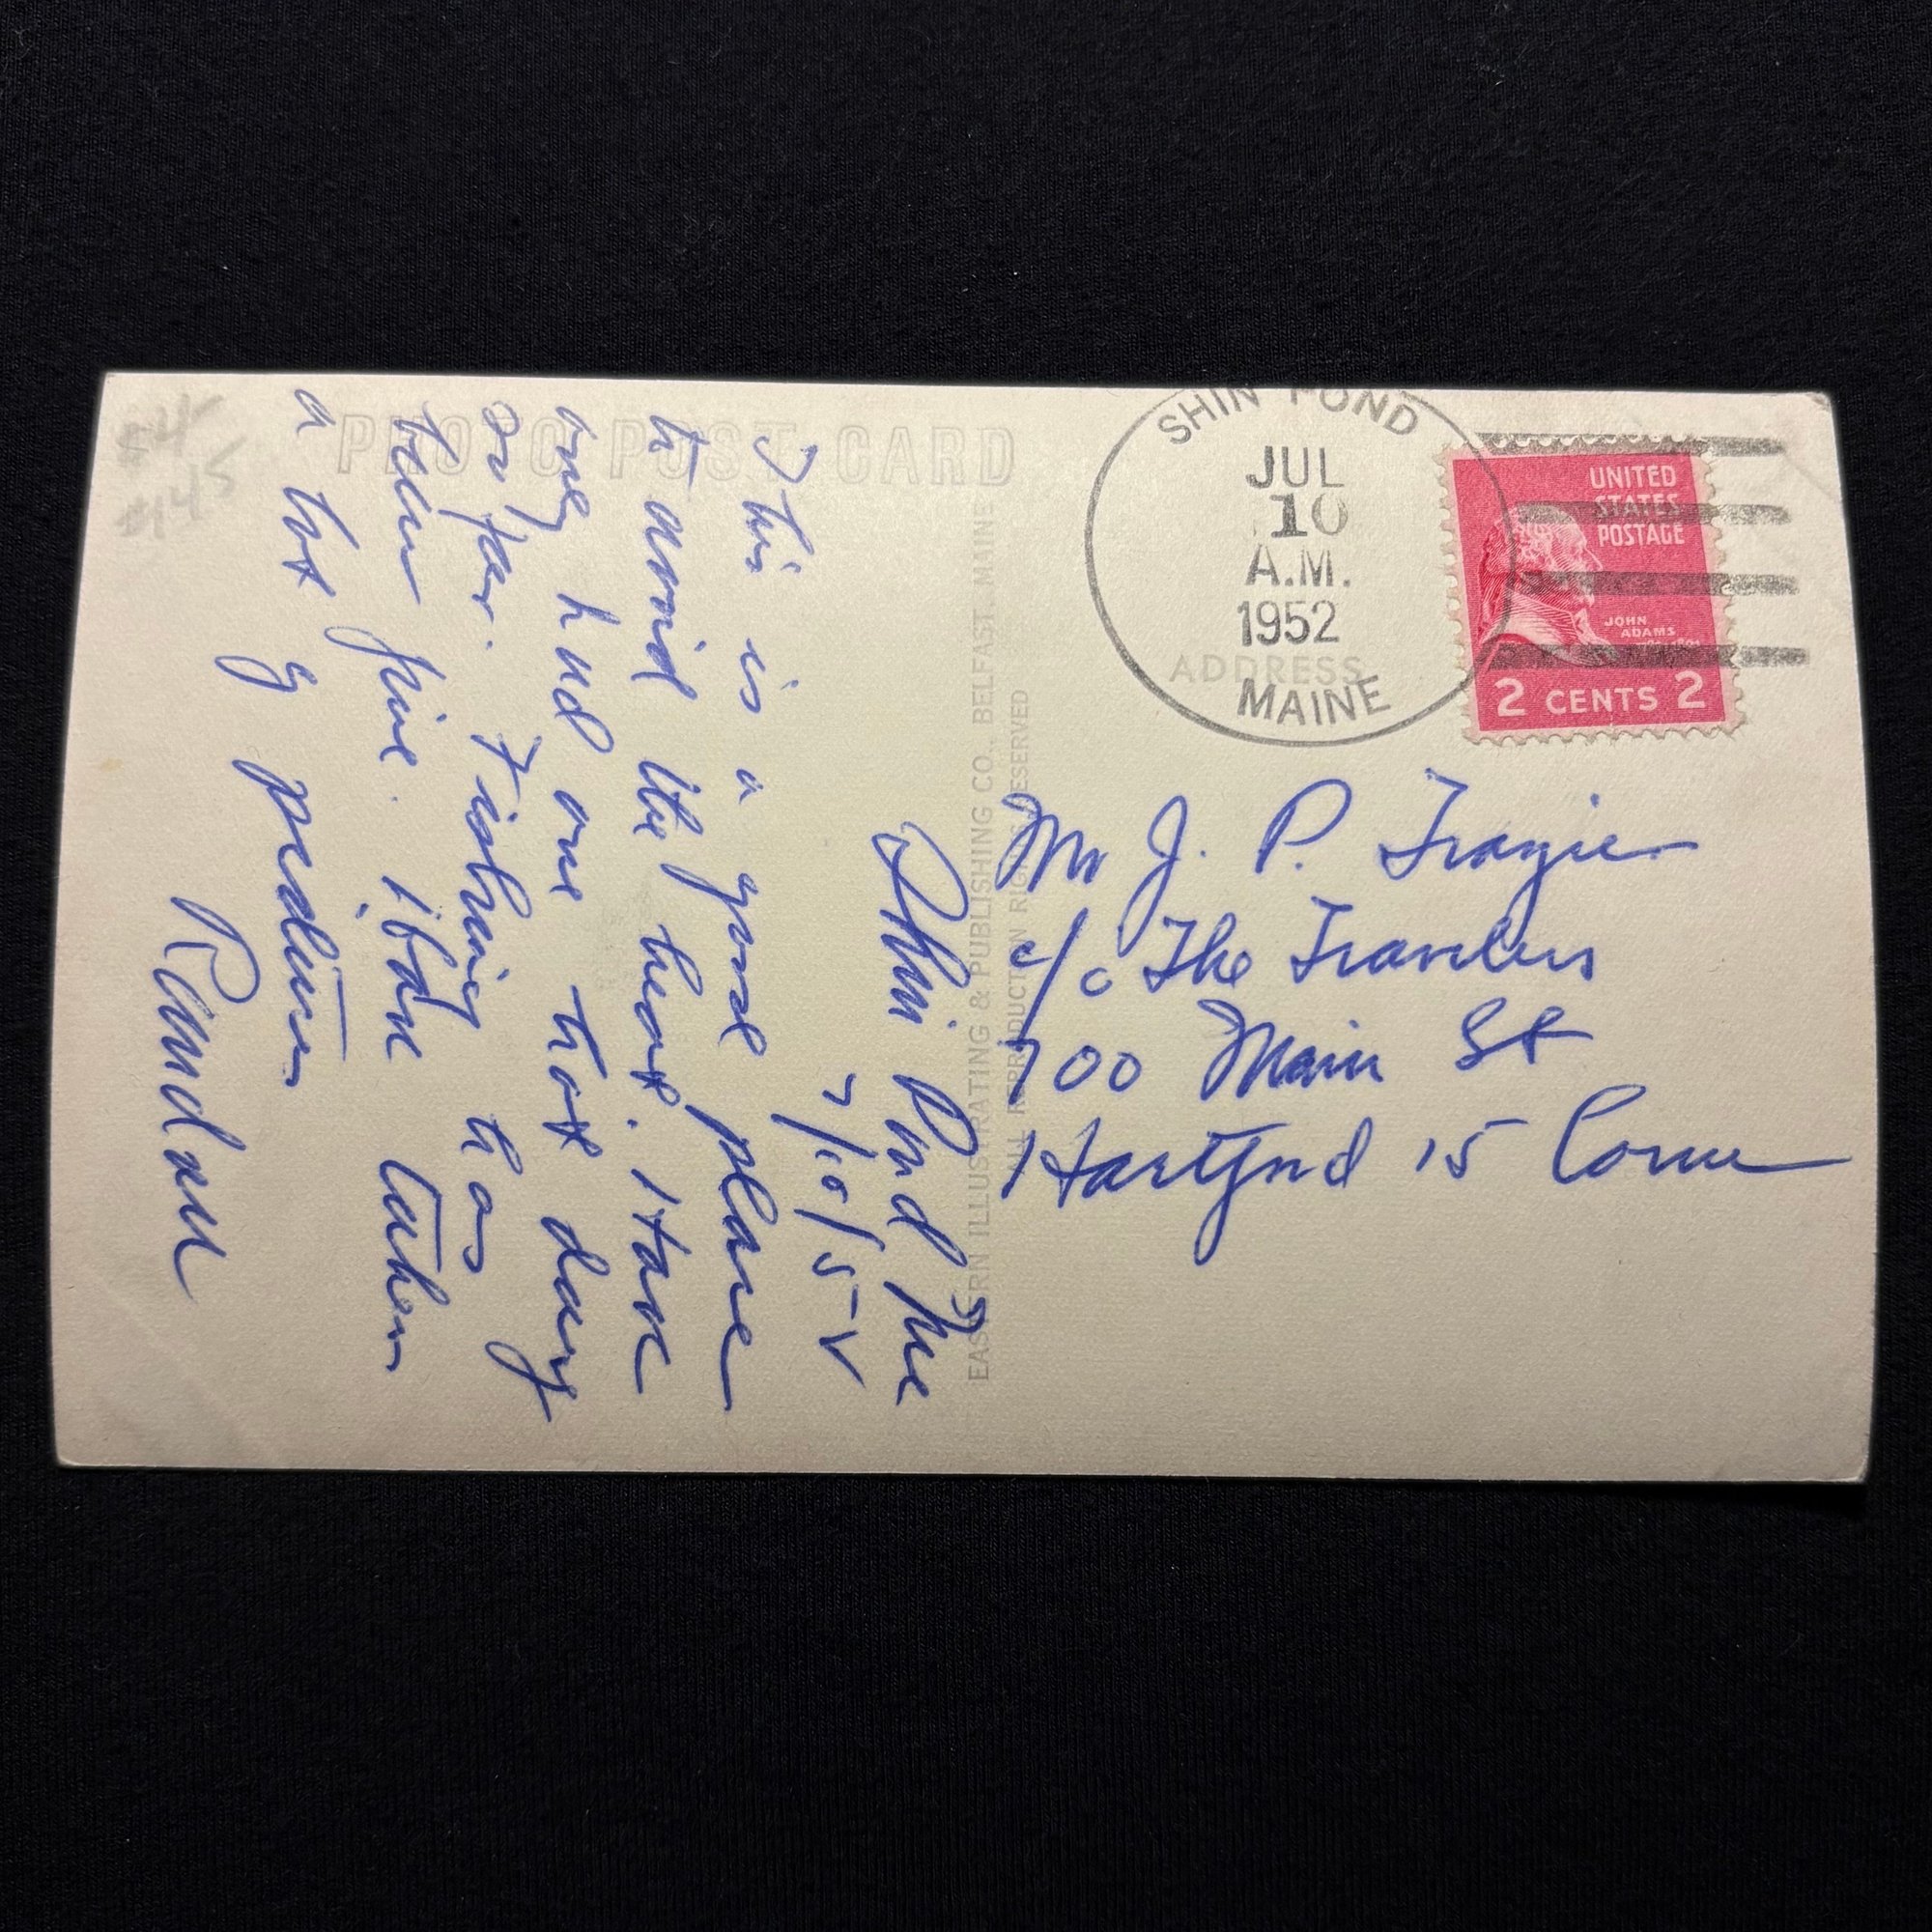 PHOTO POST CARD
ADDRESS
SHIN POND
JUL
10
A.M.
1952
MAINE
UNITED
STATES
POSTAGE
JOHN
ADAMS
2 CENTS 2
EASTERN ILLUSTRATING & PUBLISHING CO., BELFAST, MAINE
ALL REPRODUCTION RIGHTS RESERVED
Shin Pond Me
7/10/52
This is a good place
to avoid the heat. Have
only had one hot day
so far. Fishing has
been fine. Have taken
a lot of pictures
Randall
Mr J. P. Frazier
c/o The Travelers
700 Main St
Hartford 15 Conn